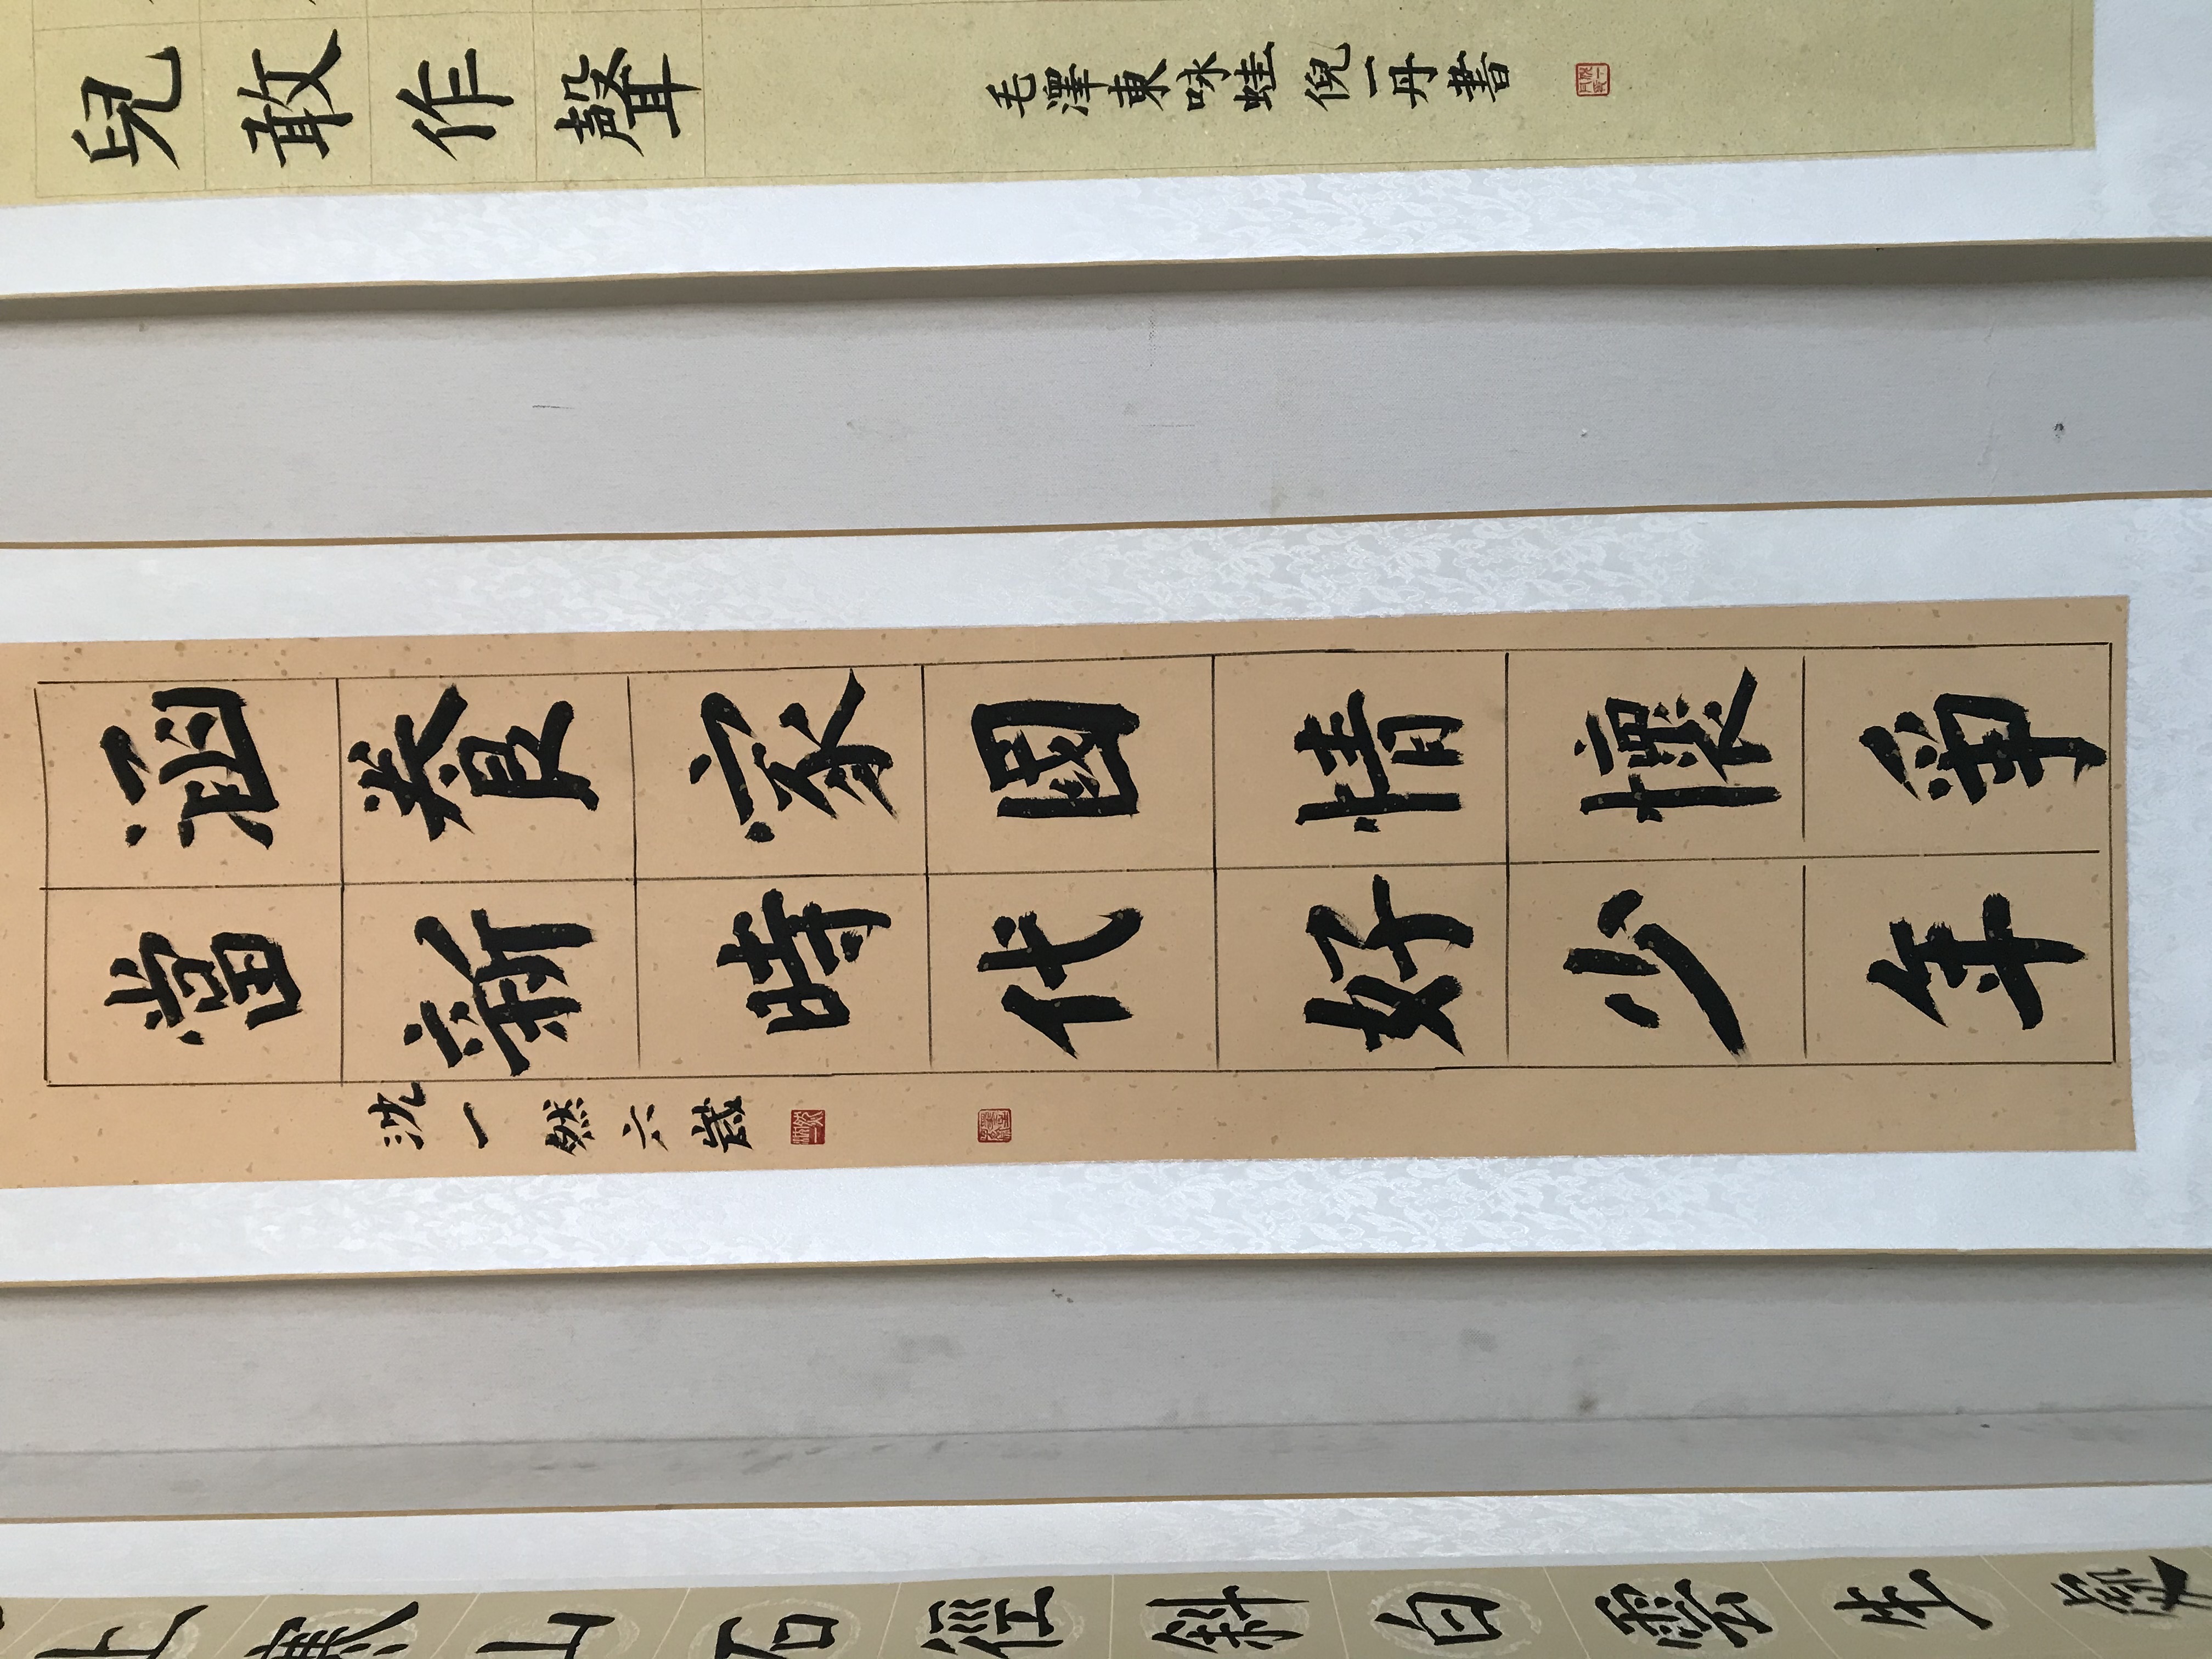 兒敢作聲
毛澤東咏蛙 倪一丹書
涵養家國情懷爭
當新時代好少年
沈一然六歲
上寒山石徑斜白雲生處